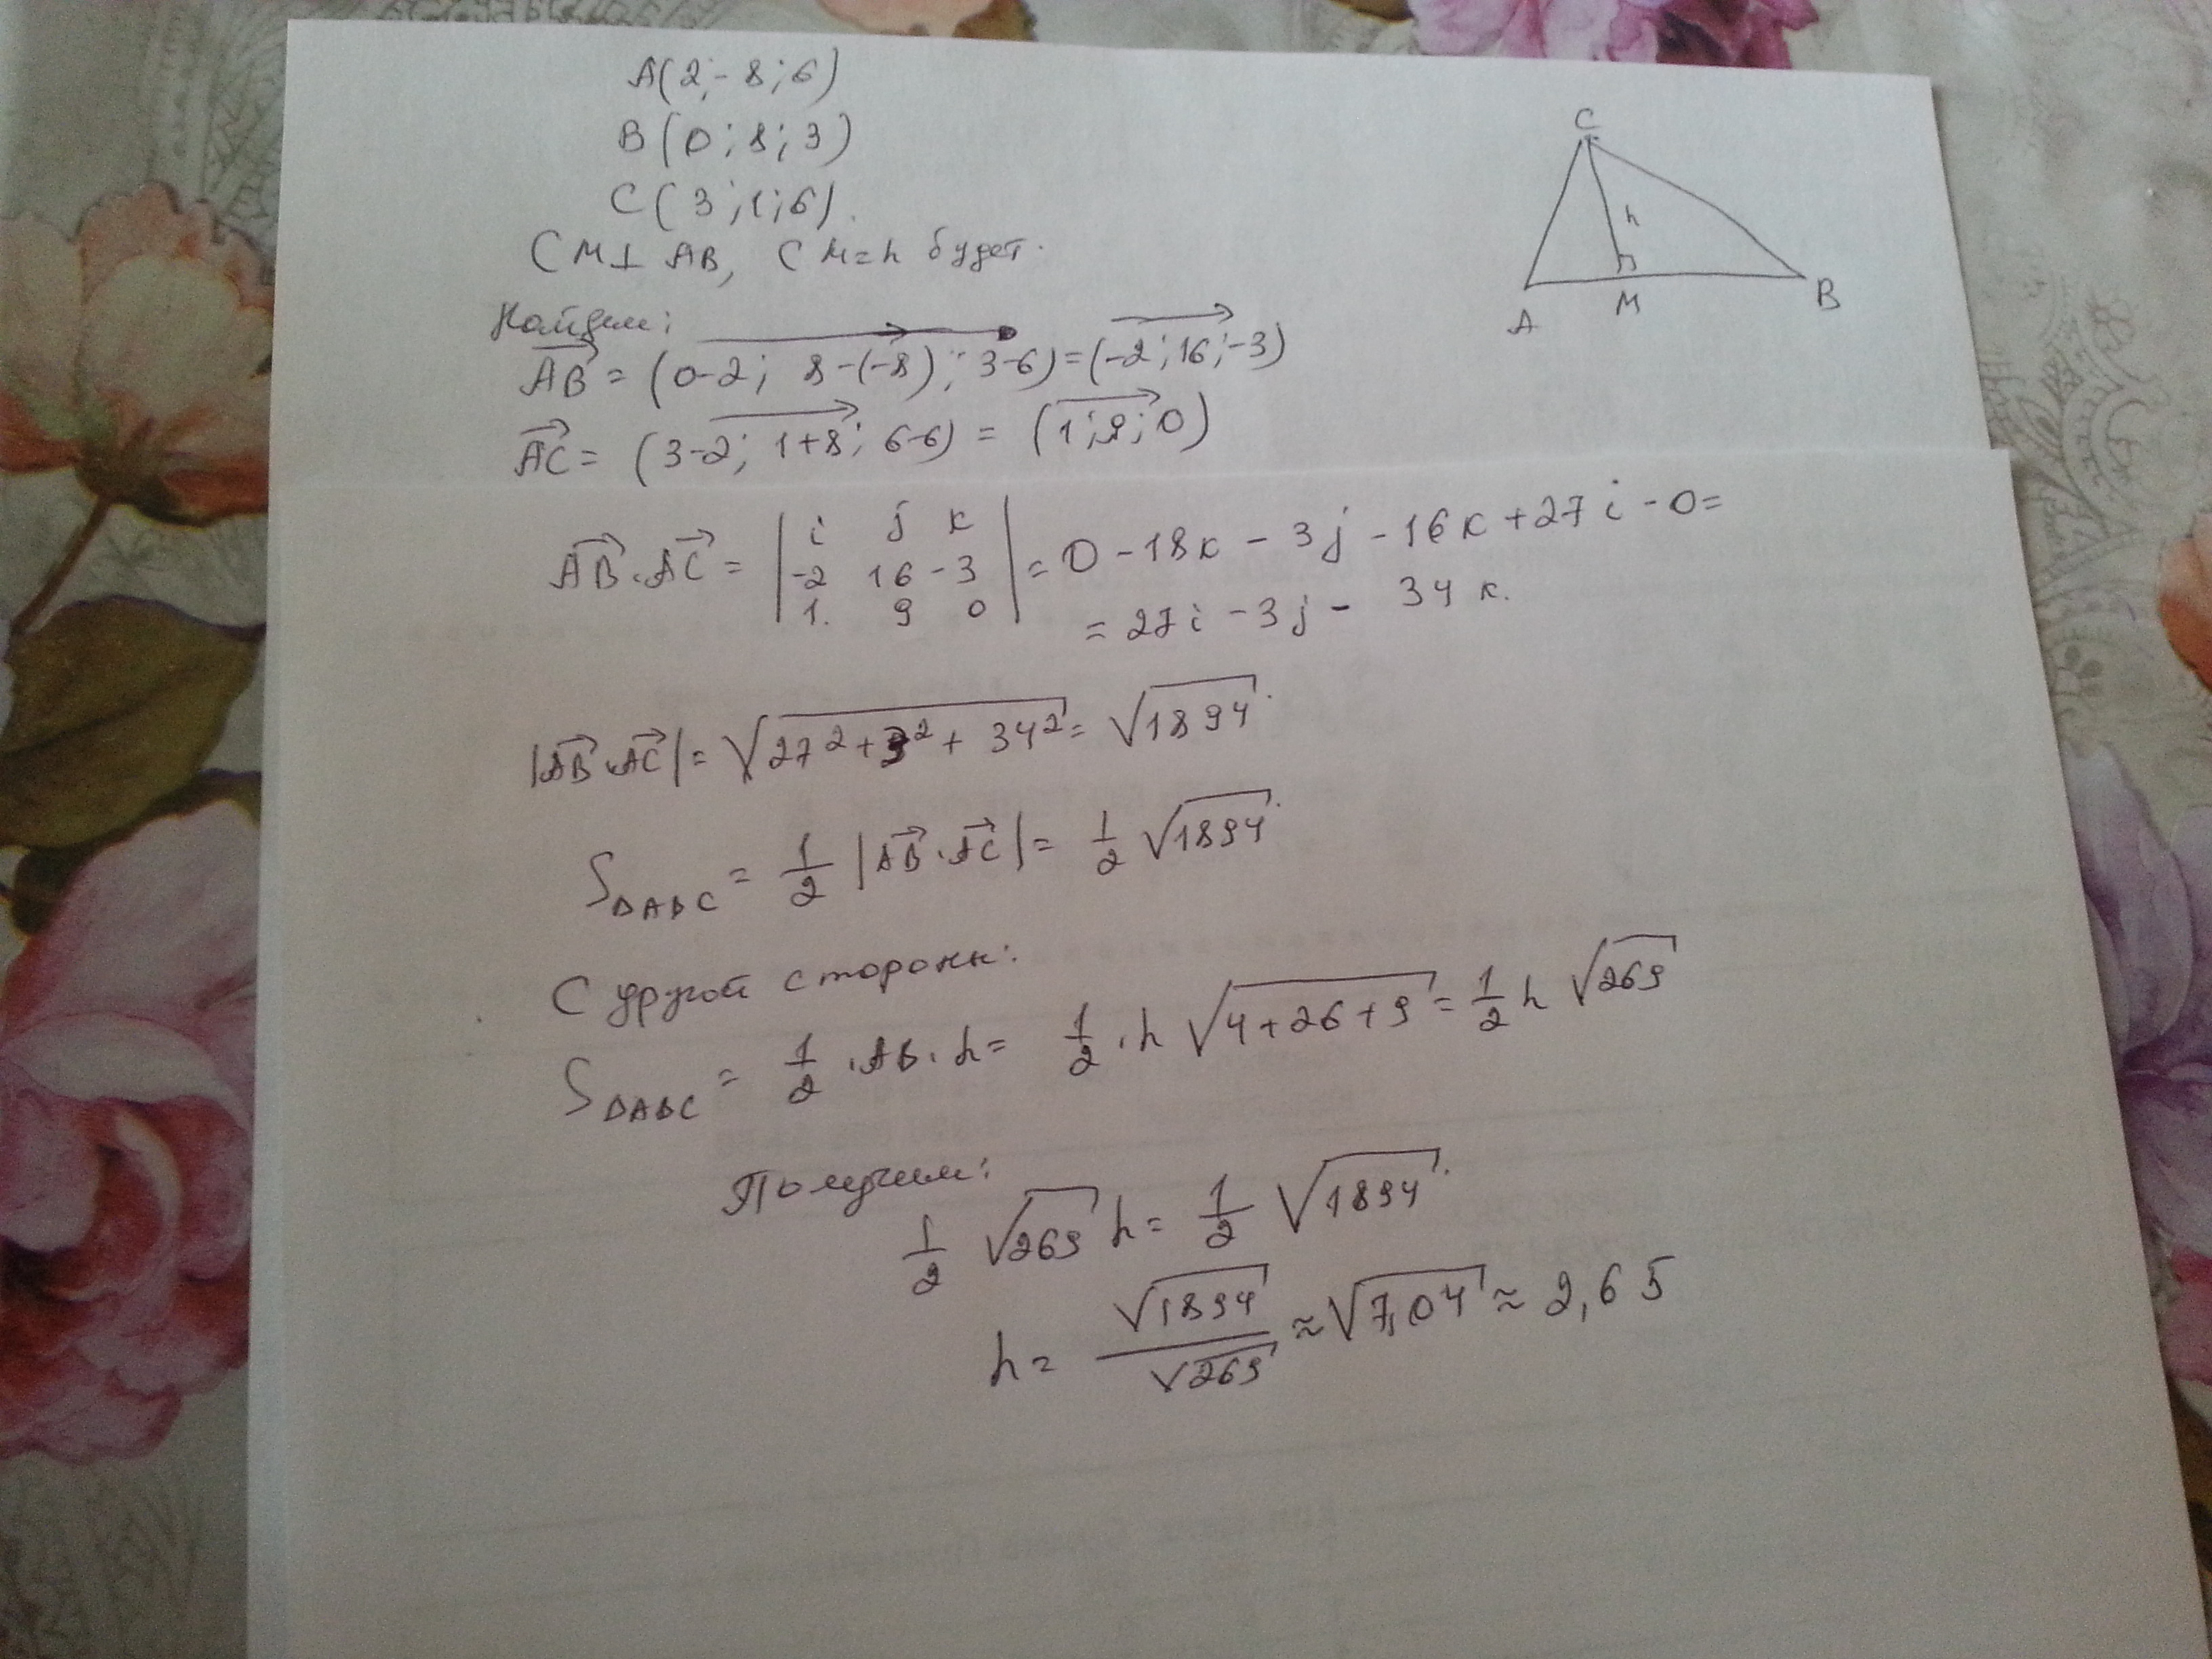 A(2;-8;6)
B(0;8;3)
C(3;1;6).
CM⊥AB, CM=h будет.
Найдем:
AB = (0-2; 8-(-8); 3-6)=(-2;16;-3)
AC = (3-2; 1+8; 6-6) = (1;9;0)
AB·AC = | i j k |
| -2 16 -3 | = 0 - 18k - 3j - 16k + 27i - 0 =
| 1. 9 0 |
= 27i - 3j - 34k.
|AB·AC| = √27²+3²+34² = √1894.
S△ABC = 1/2 |AB·AC| = 1/2 √1894.
С другой стороны:
S△ABC = 1/2 ·AB·h = 1/2·h √4+26+9 = 1/2 h √269
Получим:
1/2 √269 h = 1/2 √1894.
h = √1894/√269 ≈ √7,04 ≈ 2,65
C
h
A
M
B